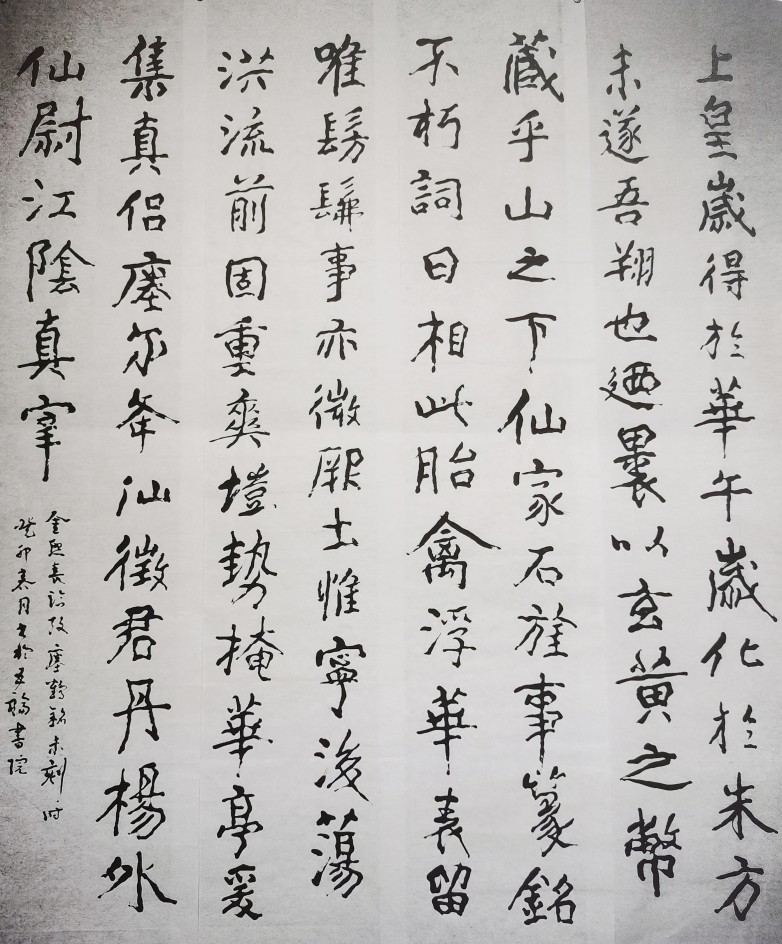 上皇歲得於華午歲化於朱方
未遂吾翔也迺裹以玄黄之幣
藏乎山之下仙家石旌事篆銘
不朽詞曰相此胎禽浮華表留
唯髣髴事亦微厥土惟寧後蕩
洪流前固重爽塏勢掩華亭爰
集真侣瘞尔夅山徵君丹楊外
仙尉江陰真宰
瘞鶴銘未刻
癸卯 月書於 書院